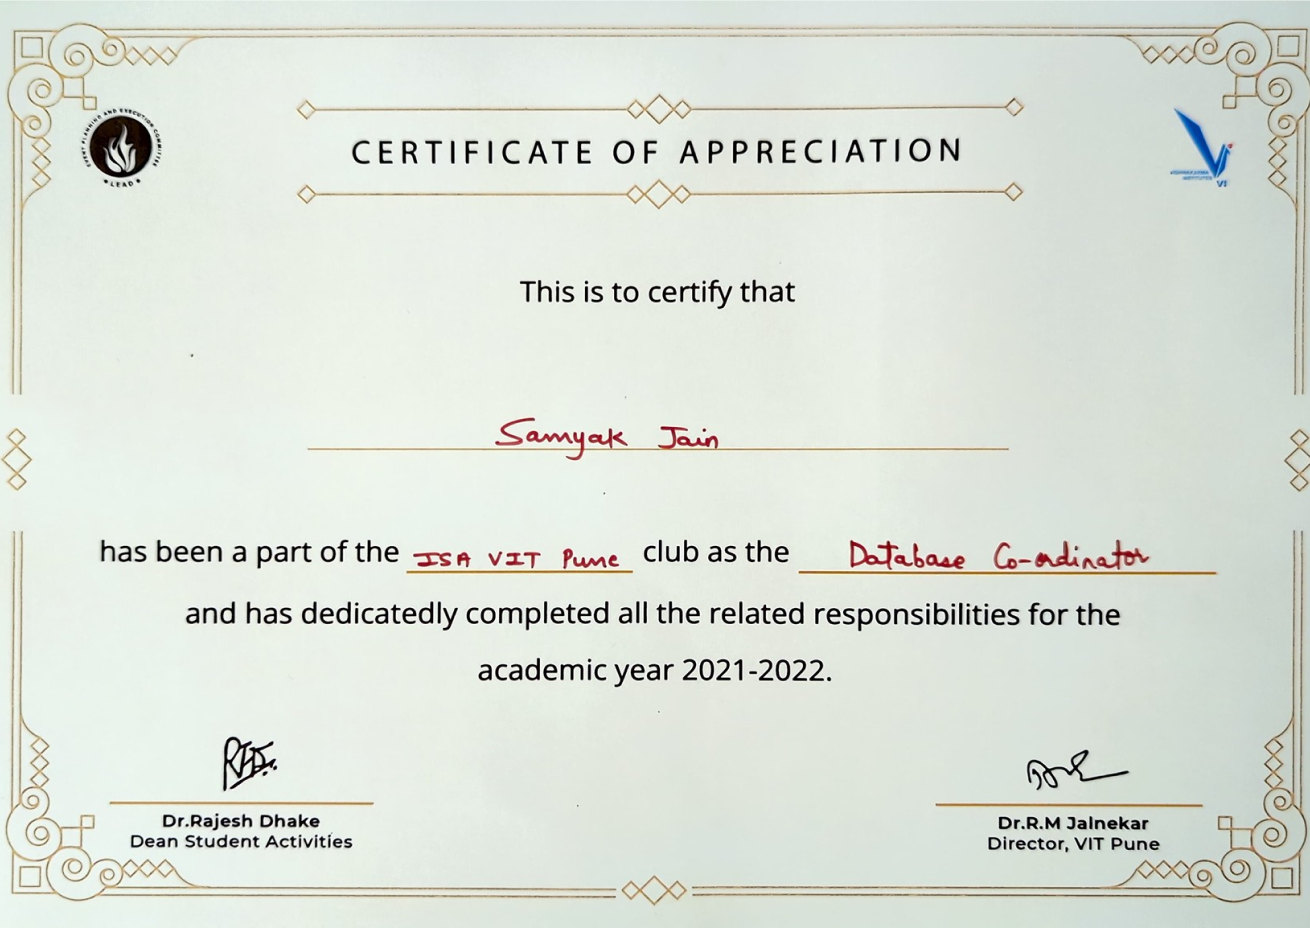 EVENT PLANNING AND EXECUTION COMMITTEE
• LEAD •
CERTIFICATE OF APPRECIATION
VISHWAKARMA
INSTITUTES
VI
This is to certify that
Samyak Jain
has been a part of the ISA VIT Pune club as the Database Co-ordinator
and has dedicatedly completed all the related responsibilities for the
academic year 2021-2022.
Dr.Rajesh Dhake
Dean Student Activities
Dr.R.M Jalnekar
Director, VIT Pune